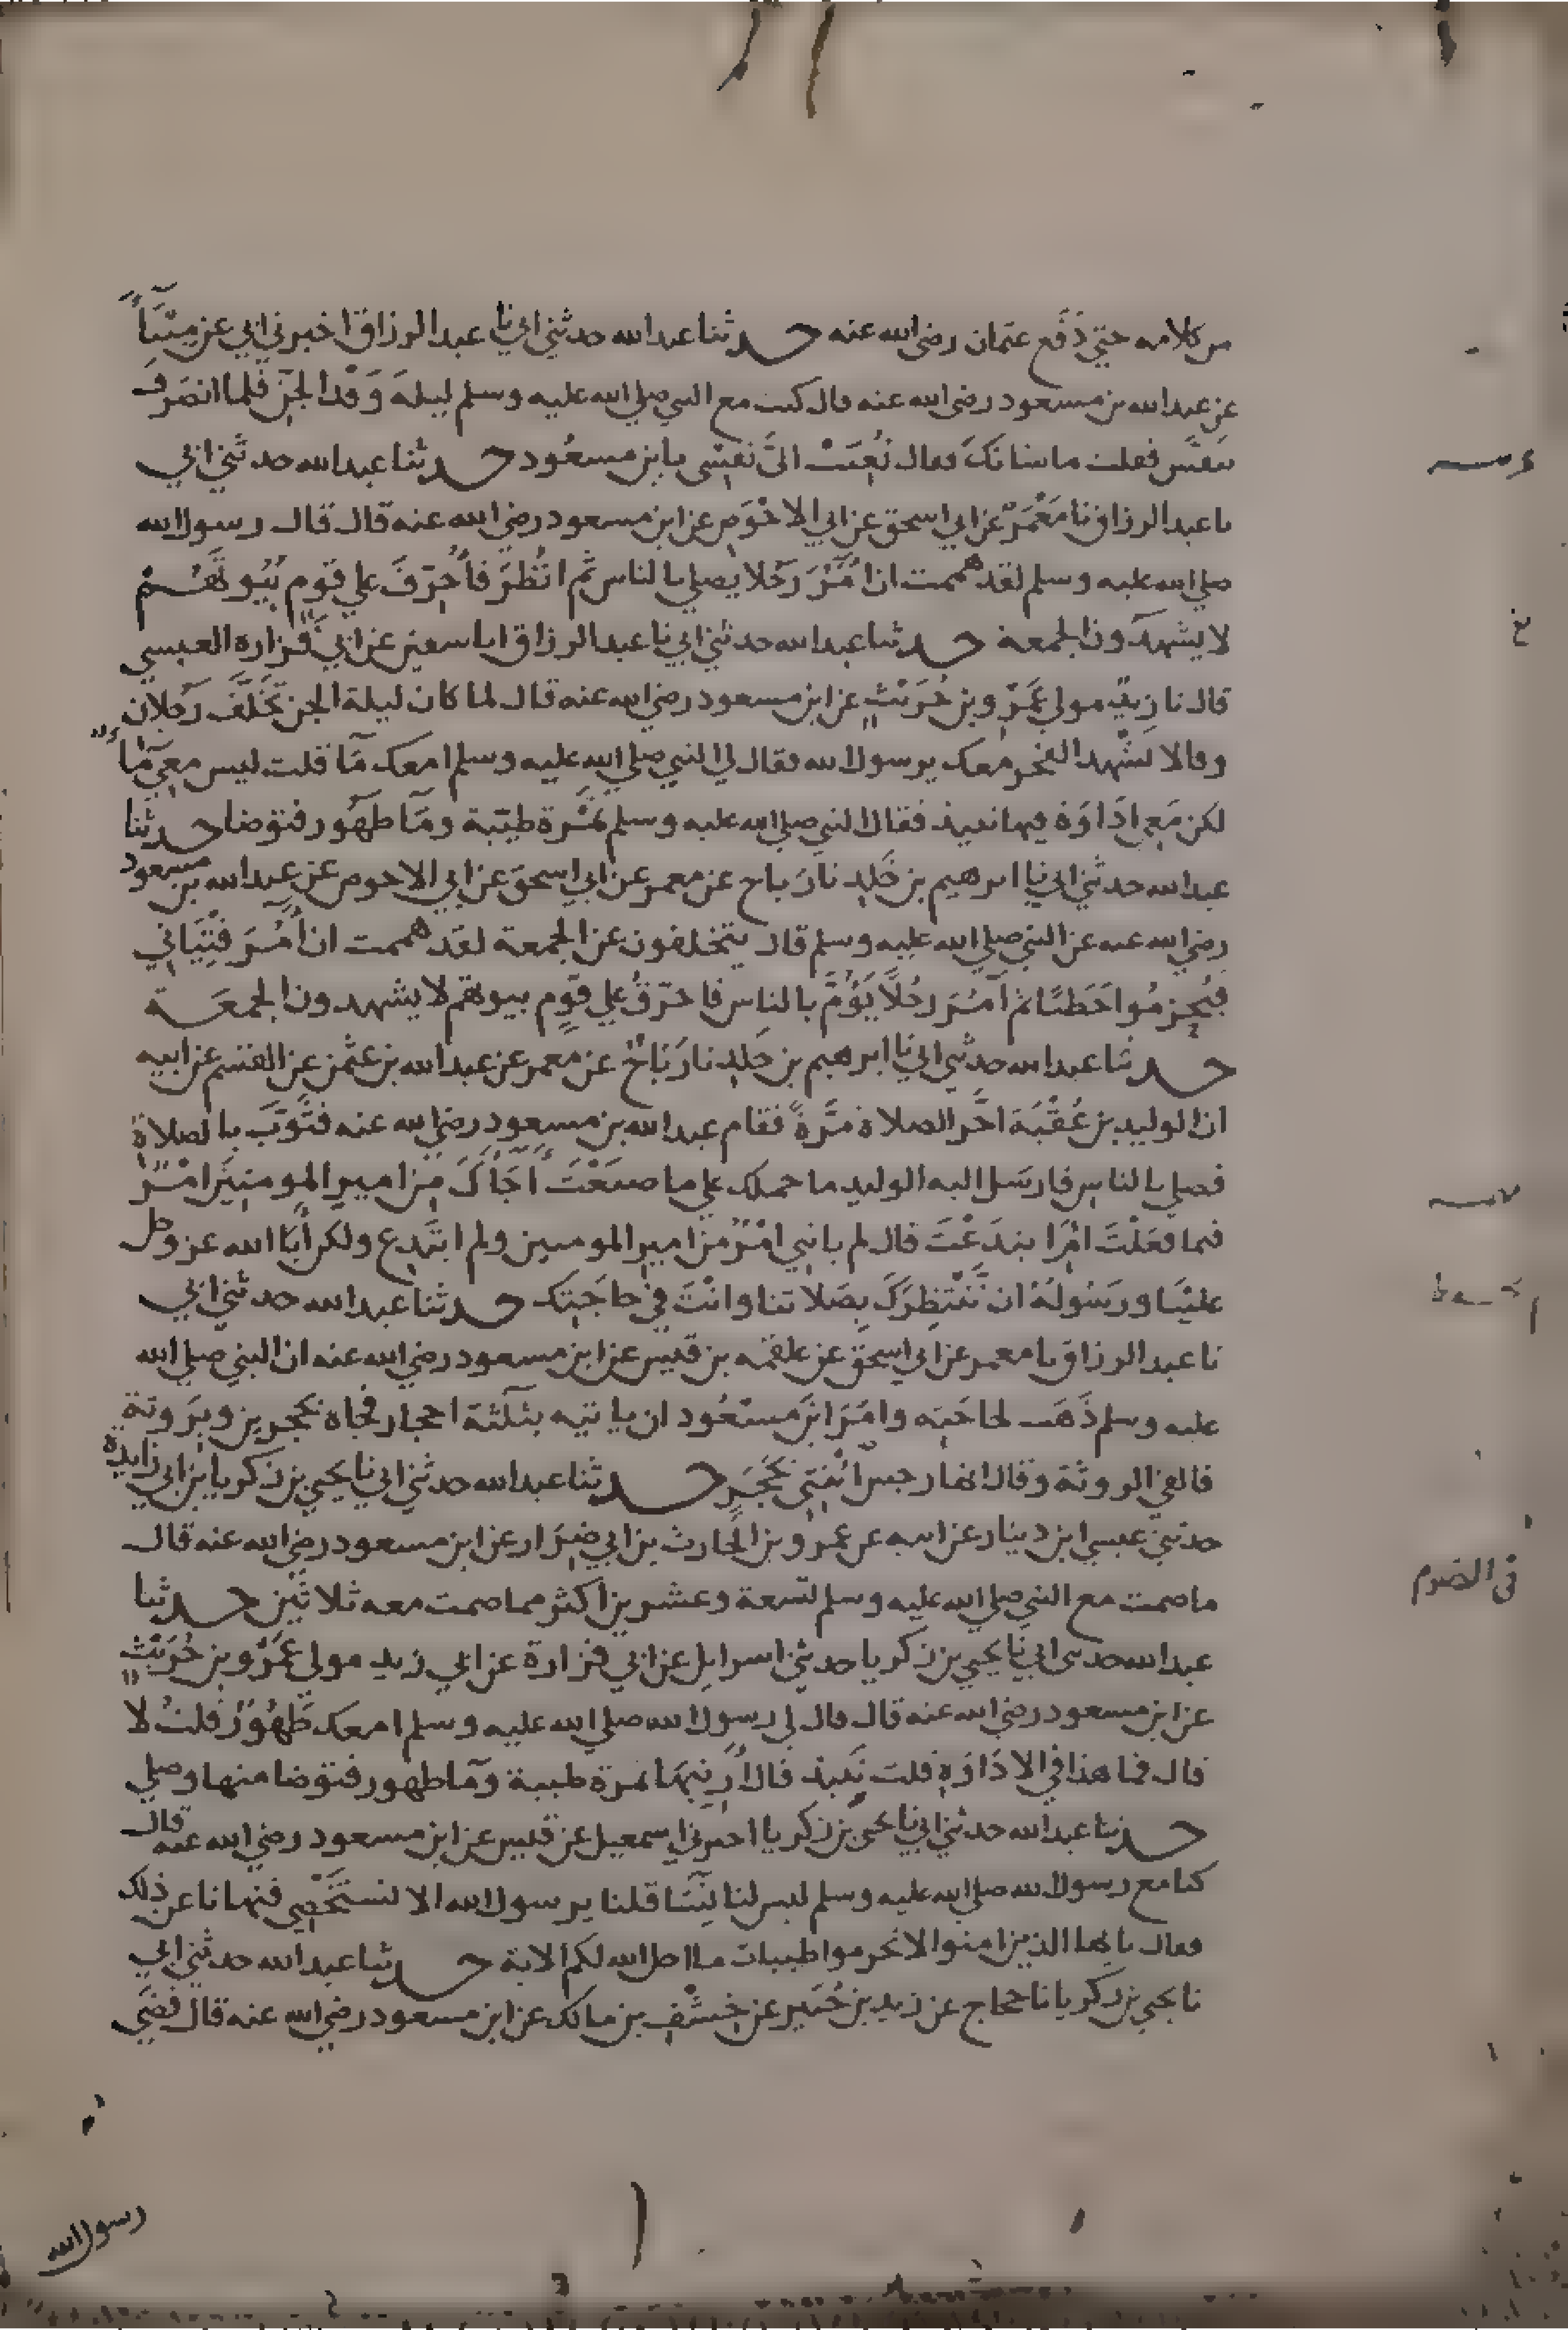 من كلامه حتي دفع عثمان رضي الله عنه حدثنا عبد الله حدثني ابي نا عبد الرزاق اخبرني ابي عن ميناء
عن عبد الله بن مسعود رضي الله عنه قال كنت مع النبي صلي الله عليه وسلم ليلة وفد الجن فلما انصرف
تنفس فقلت ما شانك فقال نعيت الي نفسي يا بن مسعود حدثنا عبد الله حدثني ابي
نا عبد الرزاق نا معمر عن ابي اسحق عن ابي الاحوص عن ابن مسعود رضي الله عنه قال قال رسول الله
صلي الله عليه وسلم لقد هممت ان امر رجلا يصلي بالناس ثم انظر فاحرق علي قوم بيوتهم
لا يشهدون الجمعة حدثنا عبد الله حدثني ابي نا عبد الرزاق انا سفين عن ابي فزارة العبسي
قال نا زيد مولي عمرو بن حريث عن ابن مسعود رضي الله عنه قال لما كان ليلة الجن تخلف رجلان
وقالا نشهد الفجر معك يرسول الله فقال لي النبي صلي الله عليه وسلم امعك ما قلت ليس معي ماء
لكن معي اداوة فيها نبيذ فقال النبي صلي الله عليه وسلم تمرة طيبة وما طهور فتوضا حدثنا
عبد الله حدثني ابي نا ابرهيم بن خلد نا رباح عن معمر عن ابي اسحق عن ابي الاحوص عن عبد الله بن مسعود
رضي الله عنه عن النبي صلي الله عليه وسلم قال يتخلفون عن الجمعة لقد هممت ان امر فتياني
فيحزموا حطبا ثم امر رجلا يؤم بالناس فاحرق علي قوم بيوتهم لا يشهدون الجمعة
حدثنا عبد الله حدثني ابي نا ابرهيم بن خلد نا رباح عن معمر عن عبد الله بن عثمن عن القسم عن ابيه
ان الوليد بن عقبة اخر الصلاة مرة فقام عبد الله بن مسعود رضي الله عنه فثوب بالصلاة
فصلي بالناس فارسل اليه الوليد ما حملك علي ما صنعت اجاك من امير المومنين امر
فيما فعلت ام ابتدعت قال لم ياتني امر من امير المومنين ولم ابتدع ولكن ابا الله عز وجل
علينا ورسوله ان ننتظرك بصلاتنا وانت في حاجتك حدثنا عبد الله حدثني ابي
نا عبد الرزاق نا معمر عن ابي اسحق عن علقمه بن قيس عن ابن مسعود رضي الله عنه ان النبي صلي الله
عليه وسلم ذهب لحاجته وامر ابن مسعود ان ياتيه بثلثة احجار فجاه بحجرين وبروثة
فالقي الروثة وقال انها رجس ائتني بحجر حدثنا عبد الله حدثني ابي نا يحيي بن زكريا بن ابي زايدة
حدثني عيسي ابن دينار عن ابيه عن عمرو بن الحارث بن ابي ضرار عن ابن مسعود رضي الله عنه قال
ما صمت مع النبي صلي الله عليه وسلم تسعة وعشرين اكثر مما صمت معه ثلاثين حدثنا
عبد الله حدثني ابي نا يحيي بن زكريا حدثني اسرايل عن ابي فزارة عن ابي زيد مولي عمرو بن حريث
عن ابن مسعود رضي الله عنه قال قال لي رسول الله صلي الله عليه وسلم امعك طهور قلت لا
قال فما هذا في الاداوة قلت نبيذ قال ارنيها تمرة طيبة وما طهور فتوضا منها وصلي
حدثنا عبد الله حدثني ابي نا يحيي بن زكريا اخبرني اسمعيل عن قيس عن ابن مسعود رضي الله عنه قال
كنا مع رسول الله صلي الله عليه وسلم ليس لنا نسا قلنا يرسول الله الا نستخصي فنهانا عن ذلك
فقال يايها الذين امنوا لا تحرموا طيبات ما احل الله لكم الاية حدثنا عبد الله حدثني ابي
نا يحيي بن زكريا نا حجاج عن زيد بن جبير عن خشف بن مالك عن ابن مسعود رضي الله عنه قال قضي
في الصوم
رسول الله